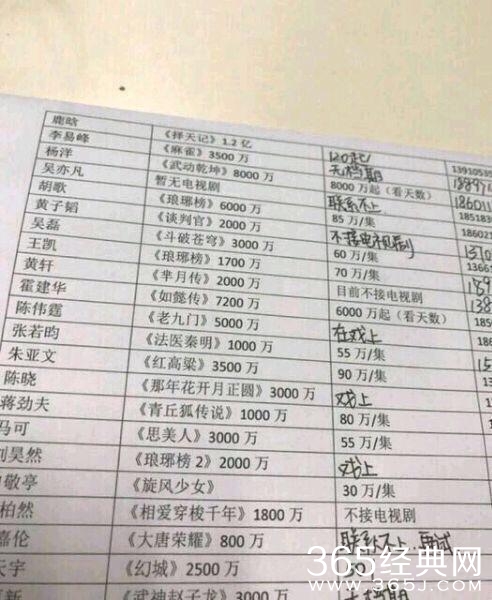 鹿晗 《择天记》1.2 亿 120起/ 13910535
李易峰 《麻雀》3500 万 无档期
杨洋 《武动乾坤》8000 万 8000 万起（看天数） 186011
吴亦凡 暂无电视剧 联系不上 185183
胡歌 《琅琊榜》6000 万 85 万/集 18602
黄子韬 《谈判官》2000 万 不接电视剧 1370
吴磊 《斗破苍穹》3000 万 60 万/集 1366
王凯 《琅琊榜》1700 万 70 万/集 189
黄轩 《芈月传》2000 万 目前不接电视剧 138
霍建华 《如懿传》7200 万 6000 万起（看天数） 186
陈伟霆 《老九门》5000 万 在戏上 18
张若昀 《法医秦明》1000 万 55 万/集
朱亚文 《红高粱》3500 万 90 万/集
陈晓 《那年花开月正圆》3000 万 戏上
蒋劲夫 《青丘狐传说》1000 万 80 万/集
马可 《思美人》3000 万 55 万/集
刘昊然 《琅琊榜 2》2000 万 戏上
敬亭 《旋风少女》 30 万/集
柏然 《相爱穿梭千年》1800 万 不接电视剧
嘉伦 《大唐荣耀》800 万 联系不上，再试
天宇 《幻城》2500 万
《武神赵子龙》3000 万 无档期
365经典网
WWW.365J.COM